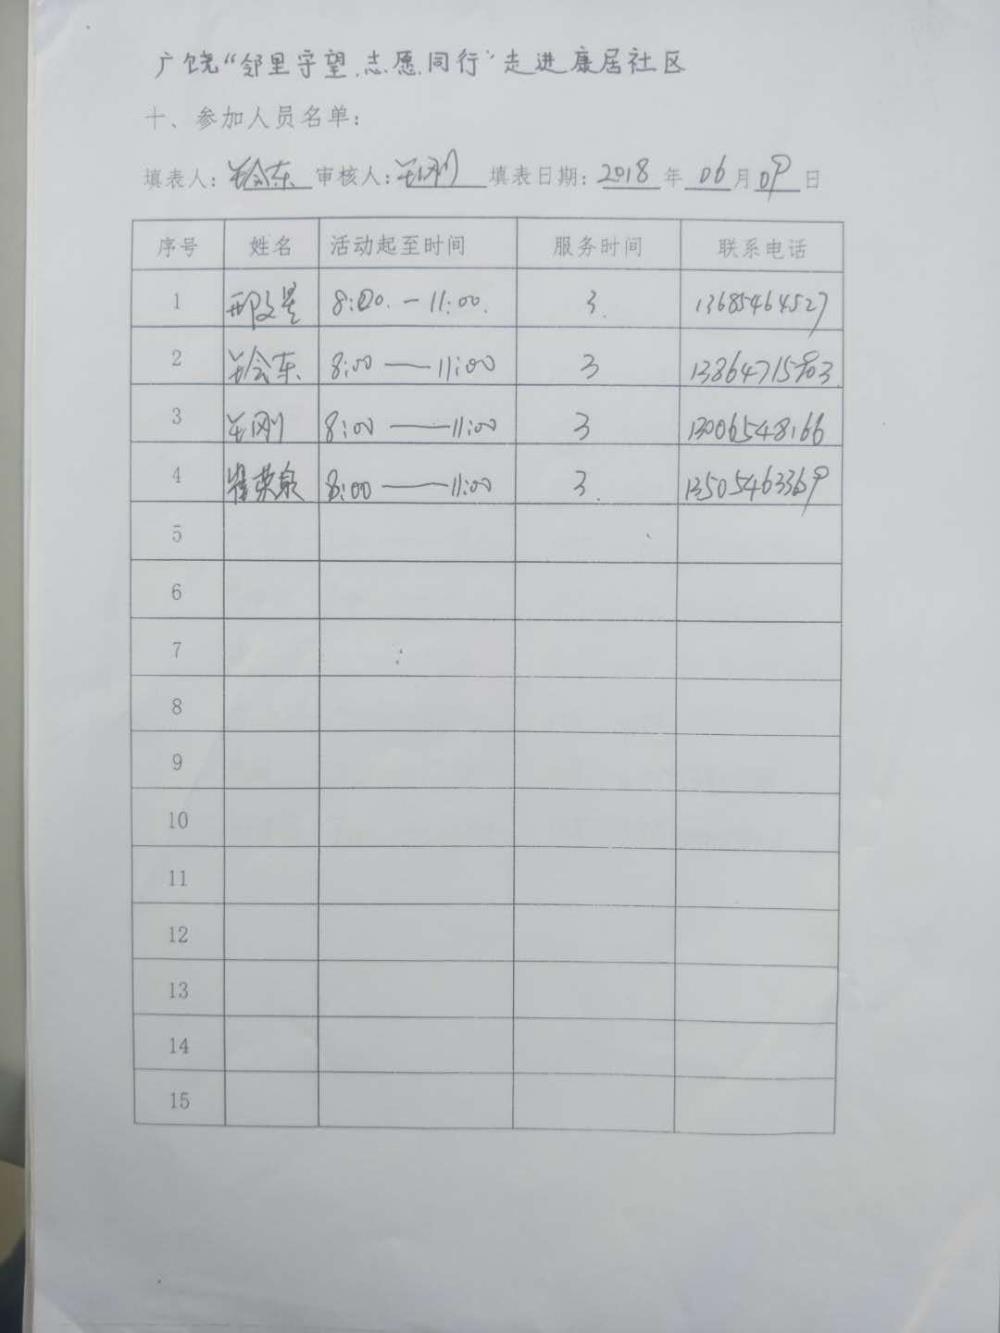 广饶“邻里守望、志愿同行”走进康居社区
十、参加人员名单:
填表人: 审核人: 王刚 填表日期: 2018 年 06 月 09 日
序号 姓名 活动起至时间 服务时间 联系电话
1 8:00.—11:00. 3. 13685464527
2 8:00——11:00 3 13864715903
3 王刚 8:00——11:00 3 13006548166
4 崔英泉 8:00——11:00 3. 13505463369
5
6
7
8
9
10
11
12
13
14
15